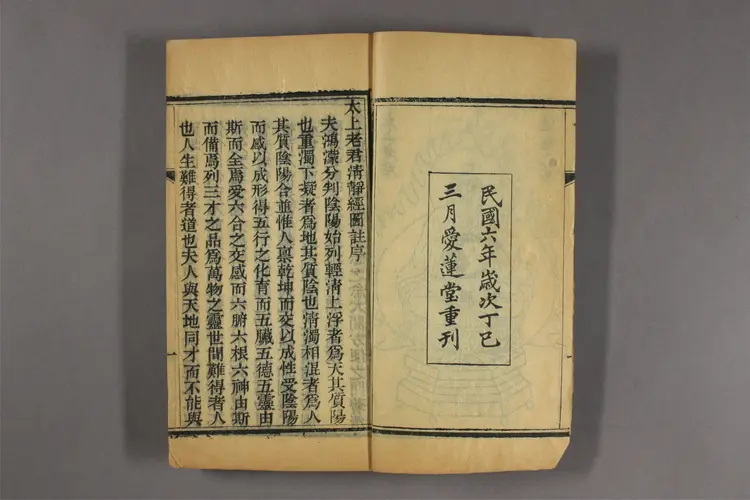 民國六年歲次丁巳
三月愛蓮堂重刊
太上老君清靜經圖註序
夫鴻濛分判陰陽始列輕清上浮者為天其質陽
也重濁下凝者為地其質陰也清濁相混者為人
其質陰陽合並惟人禀乾坤而交以成性受陰陽
而感以成形得五行之化育而五臟五德五靈由
斯而全為愛六合之交感而六腑六根六神由斯
而備焉列三才之品為萬物之靈世間難得者人
也人生難得者道也夫人與天地同才而不能與